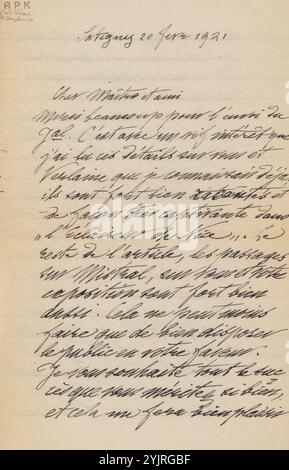 RPK
Satigny 20 fevr 1921
Cher Maître et ami
Merci beaucoup pour l'envoi du
Jal. C'est avec un vif intérêt que
j'ai lu ces détails sur vous et
Verlaine que je connaissais déjà
ils sont fort bien racontés et
de façon très captivante dans
Le
reste de l'article, les passages
sur Mistral, sur votre
exposition sont fort bien
aussi. Cela ne peut mous
faire que de bien disposer
le public en votre faveur.
Je vous souhaite tout le suc
cès que vous méritez si bien,
et cela me fera bien plaisir
alamy
Image ID: 3RJRGBF
www.alamy.com